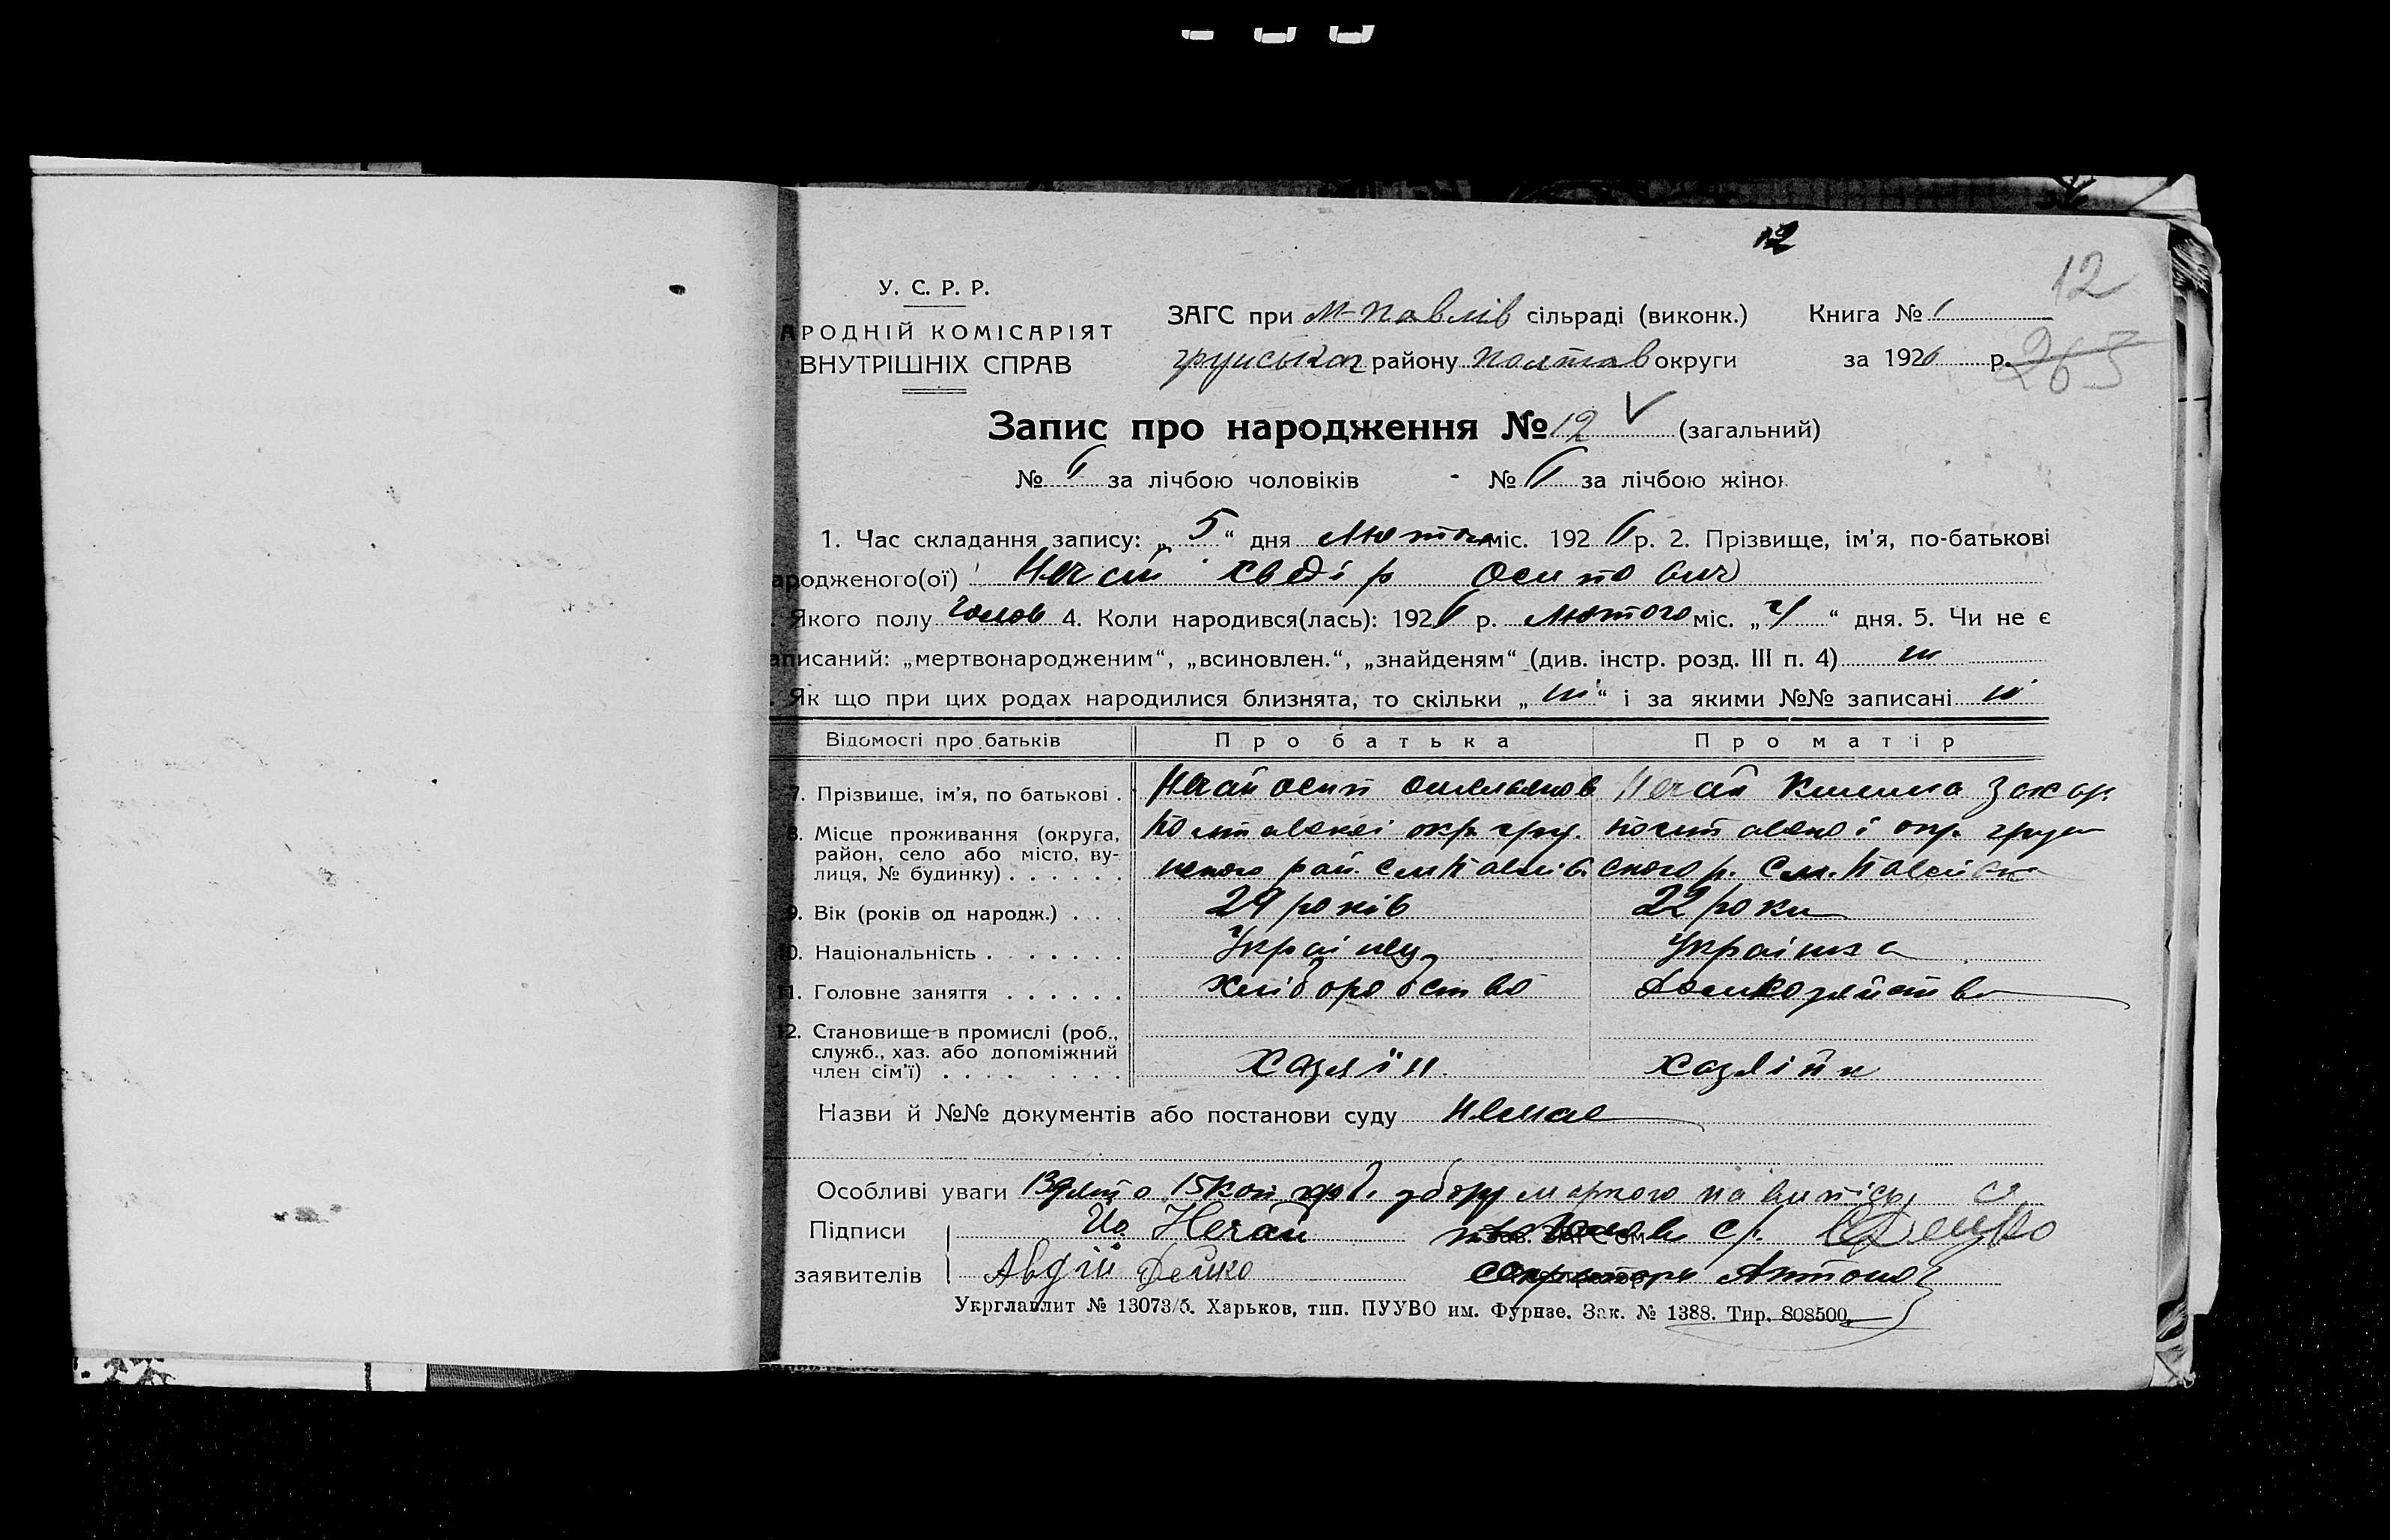 12
12
У. С. Р. Р.
АРОДНІЙ КОМІСАРІЯТ
ВНУТРІШНІХ СПРАВ
ЗАГС при М-Павлів сільраді (виконк.) Книга № 1
району Полтав округи за 1926 р. 265
Запис про народження № 12 V (загальний)
№ 6 за лічбою чоловіків № 6 за лічбою жінок
1. Час складання запису: „ 5 “ дня Лютого міс. 192 6 р. 2. Прізвище, ім’я, по-батькові
ародженого(ої) Нечай Хведір Осипович
. Якого полу Чолов 4. Коли народився(лась): 192 6 р. Лютого міс. „ 4 “ дня. 5. Чи не є
аписаний: „мертвонародженим“, „всиновлен.“, „знайденям“ (див. інстр. розд. III п. 4) ні
. Як що при цих родах народилися близнята, то скільки „ ні “ і за якими №№ записані ні
Відомості про батьків Про батька Про матір
7. Прізвище, ім’я, по батькові . Нечай Осип Омелянов Нечай Захар.
8. Місце проживання (округа, Полтавскої окр. Полтавскої окр.
район, село або місто, ву- рай. с М Павлів ского р. с М. Павлівка
лиця, № будинку) . . . . . .
9. Вік (років од народж.) . . . 24 років 22 роки
10. Національність . . . . . . . Українец Українка
11. Головне заняття . . . . . . Хліборобство Домхозяйство
12. Становище в промислі (роб.,
служб., хаз. або допоміжний
член сім’ї) . . . . . . . . Хазяїн. Хазяйк
Назви й №№ документів або постанови суду Немае
Особливі уваги Взято 15 коп. гербов. збору маркою на виписы
Підписи Нечай с/р
заявителів Авдій Дейко секретарь Антоно
Укрглавлит № 13073/б. Харьков, тип. ПУУВО им. Фрунзе. Зак. № 1388. Тир. 808500.